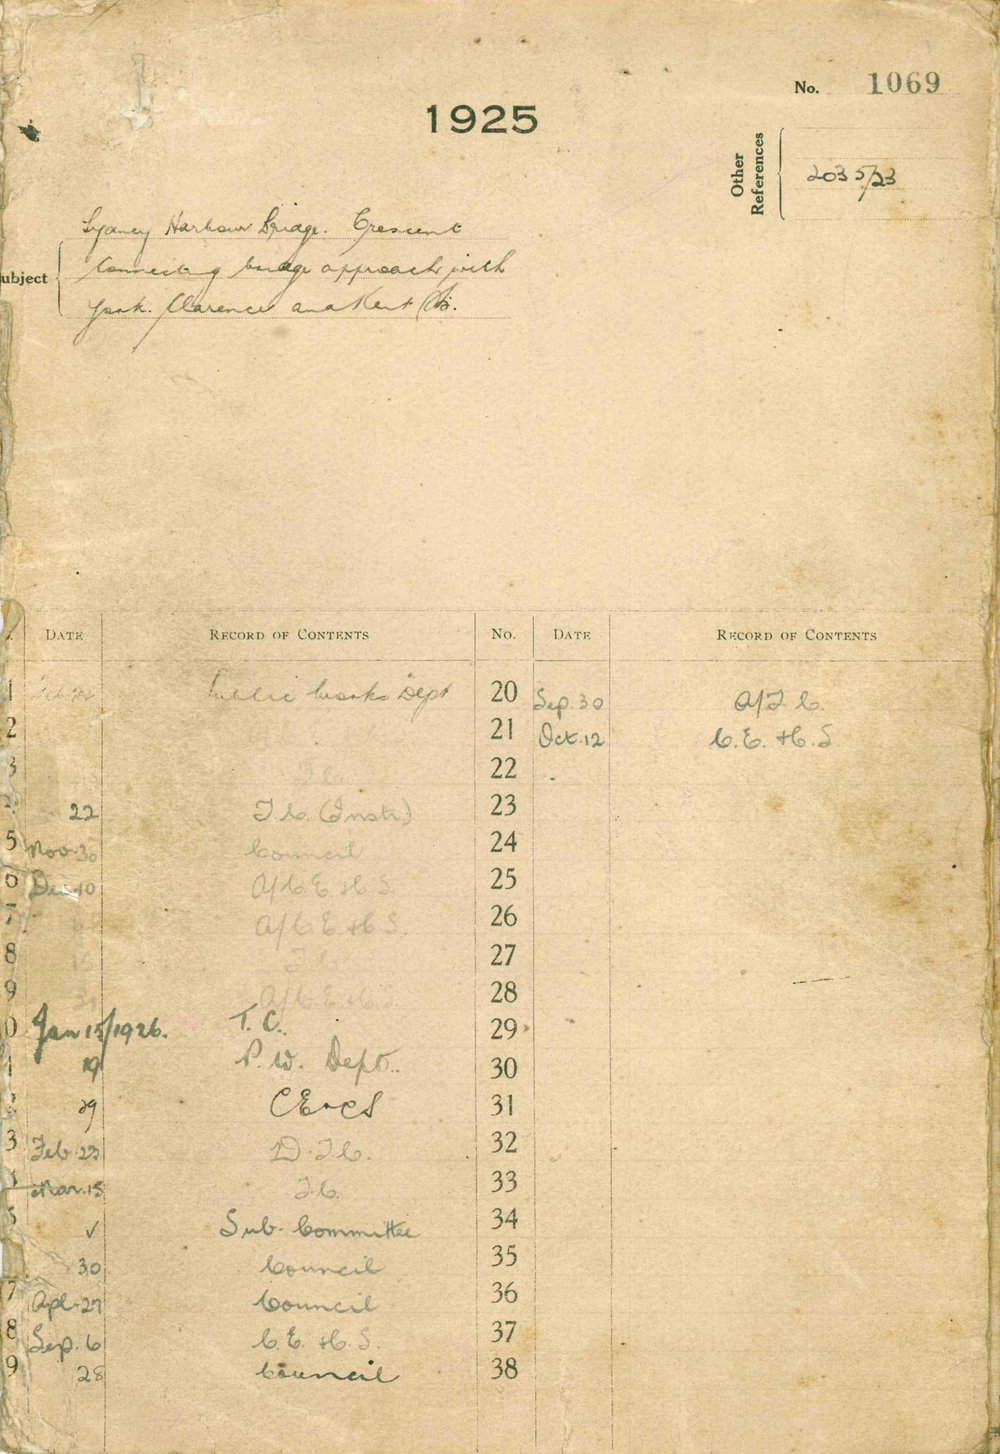 No. 1069
1925
Other References
2035/23
Sydney Harbour Bridge. Crescent
ubject
connecting bridge approach with
York. Clarence and Kent Sts.
DATE RECORD OF CONTENTS No. DATE RECORD OF CONTENTS
1 Public Works Dept 20 Sep. 30 A/T.C.
2 21 Oct. 12 C.E. & C.S.
3 T.C. 22
22 T.C. (Instr.) 23
5 Nov. 30 Council 24
6 Dec. 10 A/C.E. & C.S. 25
7 A/C.E. & C.S. 26
8 T.C. 27
9 A/C.E. & C.S. 28
0 Jan 15/1926. T.C. 29
19 P.W. Dept. 30
29 CE & CS 31
3 Feb. 23 D.T.C. 32
Mar. 15 T.C. 33
5 ✓ Sub-Committee 34
30 Council 35
7 Apl. 27 Council 36
8 Sep. 6 C.E. & C.S. 37
9 28 Council 38